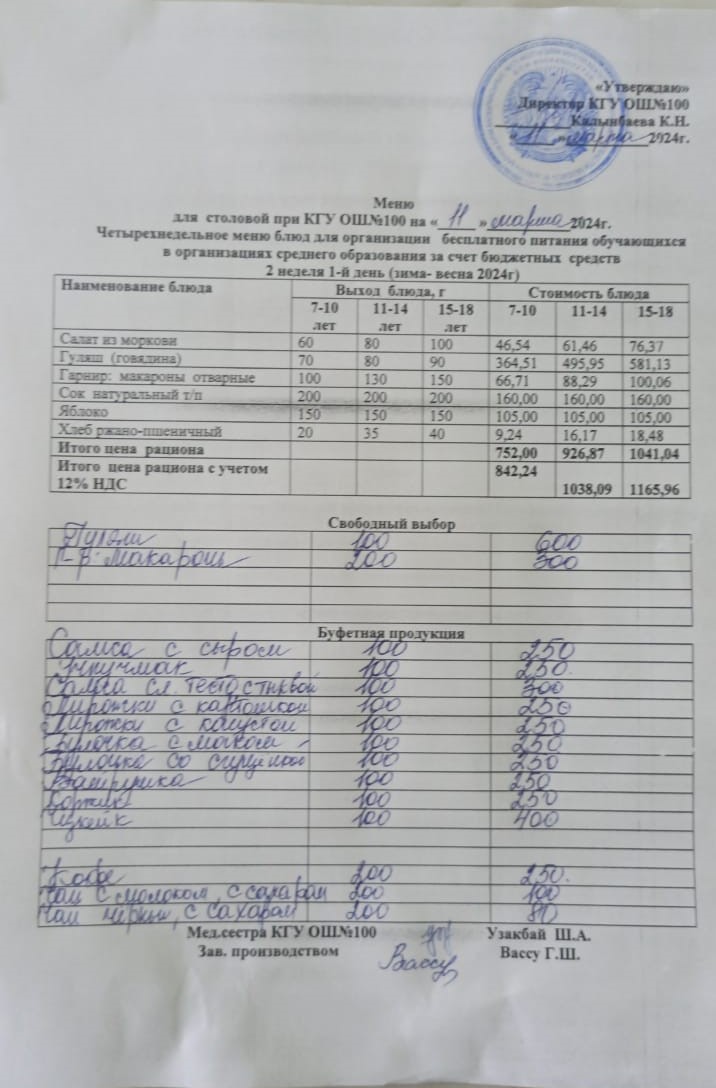 «Утверждаю»
Директор КГУ ОШ№100
Калынбаева К.Н.
« 11 » марта 2024г.
Меню
для столовой при КГУ ОШ№100 на « 11 » марта 2024г.
Четырехнедельное меню блюд для организации бесплатного питания обучающихся
в организациях среднего образования за счет бюджетных средств
2 неделя 1-й день (зима- весна 2024г)
Наименование блюда Выход блюда, г Стоимость блюда
7-10 лет 11-14 лет 15-18 лет 7-10 11-14 15-18
Салат из моркови 60 80 100 46,54 61,46 76,37
Гуляш (говядина) 70 80 90 364,51 495,95 581,13
Гарнир: макароны отварные 100 130 150 66,71 88,29 100,06
Сок натуральный т/п 200 200 200 160,00 160,00 160,00
Яблоко 150 150 150 105,00 105,00 105,00
Хлеб ржано-пшеничный 20 35 40 9,24 16,17 18,48
Итого цена рациона 752,00 926,87 1041,04
Итого цена рациона с учетом 12% НДС 842,24 1038,09 1165,96
Свободный выбор
100 600
Г-р: Макароны 200 300
Буфетная продукция
Самса с сыром 100 250
Учпучмак 100 250.
Самса сл. тесто 100 300
Пирожки с картошкой 100 250
Пирожки с капустой 100 250
Булочка с маком 100 250
Булочка со сгущенкой 100 250
Ватрушка 100 250
Коржик 100 250
Чизкейк 100 400
Кофе 200 250.
Чай с молоком, с сахаром 200 100
Чай черный, с сахаром 200 80
Мед.сестра КГУ ОШ№100 Узакбай Ш.А.
Зав. производством Вассу Вассу Г.Ш.